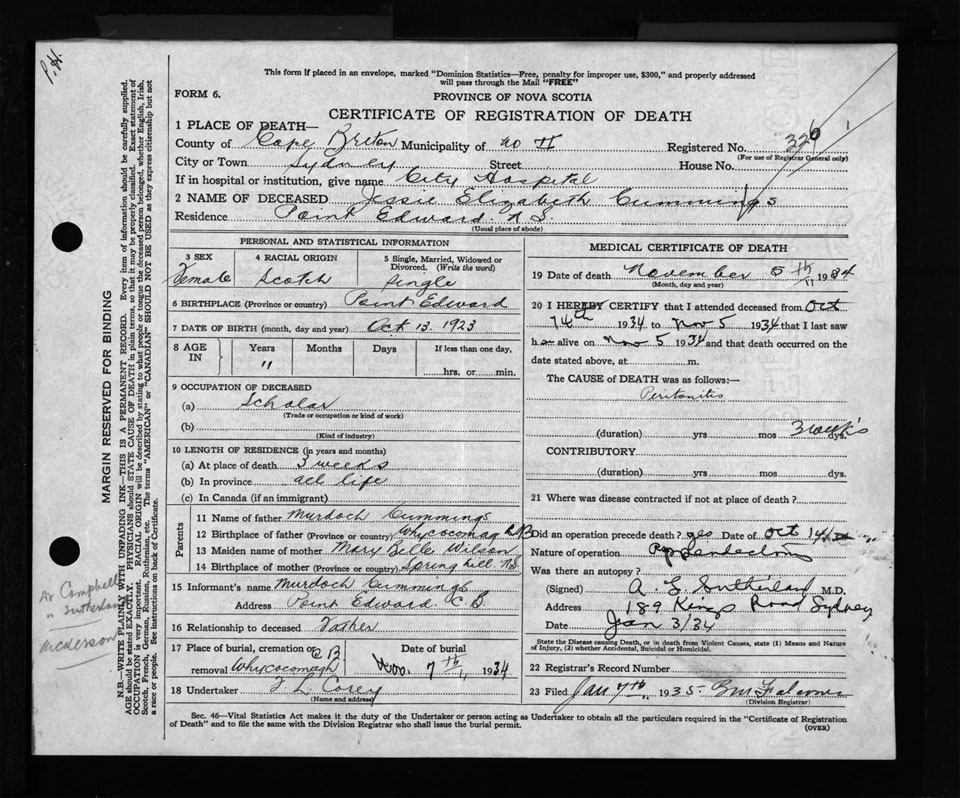 P.H.
This form if placed in an envelope, marked "Dominion Statistics—Free, penalty for improper use, $300," and properly addressed
will pass through the Mail "FREE"
FORM 6.
PROVINCE OF NOVA SCOTIA
CERTIFICATE OF REGISTRATION OF DEATH
1 PLACE OF DEATH—
County of Cape Breton Municipality of no II Registered No. 326
(For use of Registrar General only)
City or Town Sydney Street House No.
If in hospital or institution, give name City Hospital
2 NAME OF DECEASED Jessie Elizabeth Cummings
Residence Point Edward N S.
(Usual place of abode)
PERSONAL AND STATISTICAL INFORMATION
3 SEX 4 RACIAL ORIGIN 5 Single, Married, Widowed or Divorced. (Write the word)
Female Scotch Single
6 BIRTHPLACE (Province or country) Point Edward
7 DATE OF BIRTH (month, day and year) Oct 13. 1923
8 AGE IN Years Months Days If less than one day,
11 hrs. or min.
9 OCCUPATION OF DECEASED
(a) Scholar
(Trade or occupation or kind of work)
(b)
(Kind of industry)
10 LENGTH OF RESIDENCE (in years and months)
(a) At place of death 3 weeks
(b) In province all life
(c) In Canada (if an immigrant)
Parents
11 Name of father Murdoch Cummings
12 Birthplace of father (Province or country) Whycocomagh C B
13 Maiden name of mother Mary Belle Wilson
14 Birthplace of mother (Province or country) Spring hill. N.S.
15 Informant's name Murdoch Cummings
Address Point Edward C B.
16 Relationship to deceased Father
17 Place of burial, cremation or C B Date of burial
removal Whycocomagh Nov. 7th 1934
18 Undertaker F L Corey
(Name and address)
MEDICAL CERTIFICATE OF DEATH
19 Date of death November 5th 1934
(Month, day and year)
20 I HEREBY CERTIFY that I attended deceased from Oct
14th 1934 to Nov 5 1934 that I last saw
h alive on Nov 5 1934 and that death occurred on the
date stated above, at m.
The CAUSE of DEATH was as follows:—
Peritonitis
3 weeks
(duration) yrs mos dys.
CONTRIBUTORY
(duration) yrs mos dys.
21 Where was disease contracted if not at place of death?
Did an operation precede death? yes Date of Oct 14th
Nature of operation
Was there an autopsy?
(Signed) A. L Sutherland M.D.
Address 189 Kings Road Sydney
Date Jan 3/34
State the Disease causing Death, or in death from Violent Causes, state (1) Means and Nature
of Injury, (2) whether Accidental, Suicidal or Homicidal.
22 Registrar's Record Number
23 Filed Jan 7th 1935
(Division Registrar)
Sec. 46—Vital Statistics Act makes it the duty of the Undertaker or person acting as Undertaker to obtain all the particulars required in the "Certificate of Registration
of Death" and to file the same with the Division Registrar who shall issue the burial permit.
(OVER)
MARGIN RESERVED FOR BINDING
N.B.—WRITE PLAINLY WITH UNFADING INK—THIS IS A PERMANENT RECORD. Every item of information should be carefully supplied.
AGE should be stated EXACTLY. PHYSICIANS should STATE CAUSE OF DEATH in plain terms, so that it may be properly classified. Exact statement of
OCCUPATION is very important. RACIAL ORIGIN will be described by stating to what people or tongue the deceased person belonged, whether English, Irish,
Scotch, French, German, Russian, Ruthenian, etc. The terms "AMERICAN" or "CANADIAN" SHOULD NOT BE USED as they express citizenship but not
a race or people. See instructions on back of Certificate.
Campbell
" Sutherland